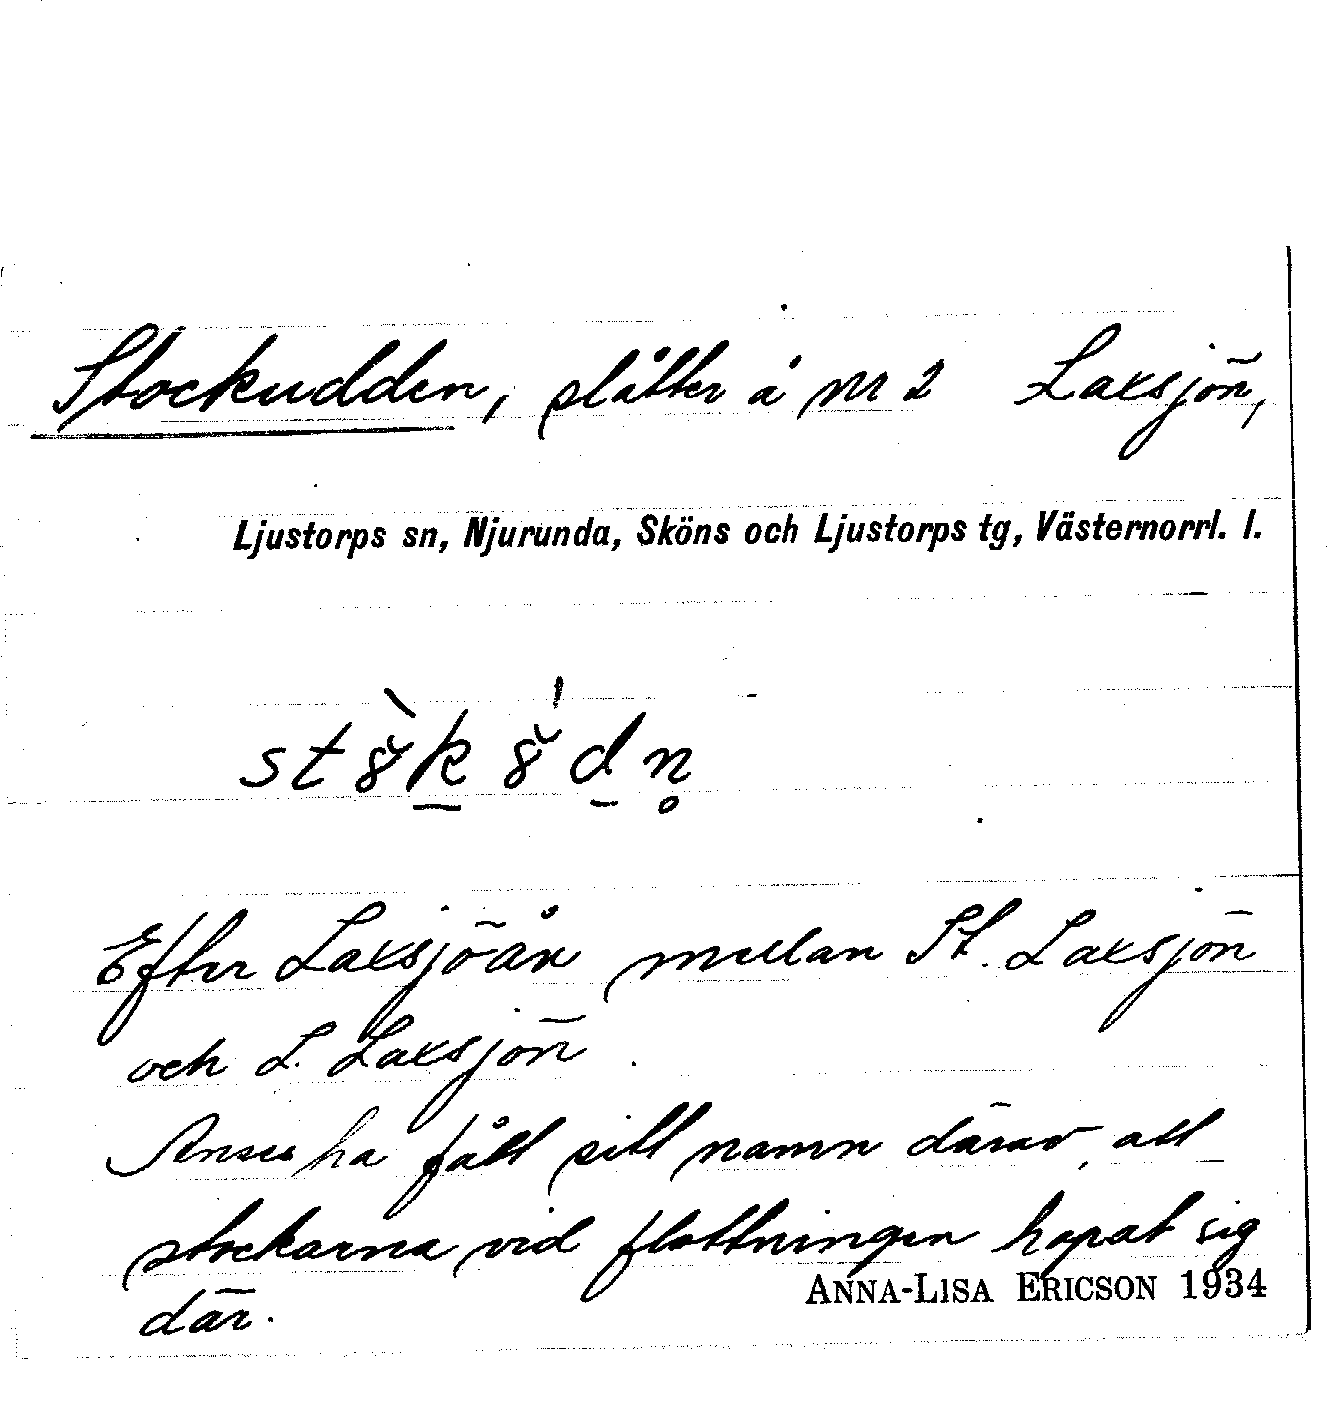 Stockudden, slåtter å nr 2 Laxsjön,
Ljustorps sn, Njurunda, Sköns och Ljustorps tg, Västernorrl. l.
Efter Laxsjöån mellan St. Laxsjön
och L. Laxsjön.
Anses ha fått sitt namn därav, att
stockarna vid flottningen hopat sig
där.
ANNA-LISA ERICSON 1934